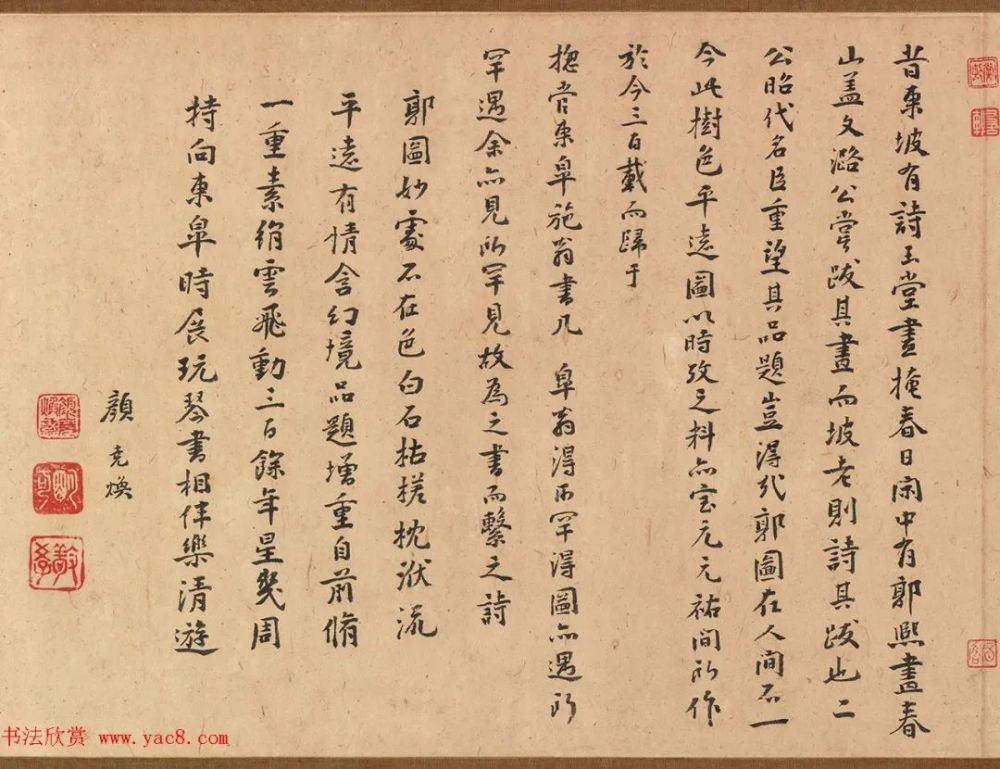 昔東坡有詩玉堂晝掩春日閑中有郭熙畫春
山盖文潞公嘗跋其畫而坡老則詩其跋也二
公昭代名臣重望其品題豈淂
郭圖在人間不一
今此樹色平遠圖以時攷之料亦
元祐間所作
於今三百載而歸于
揔管東皐施翁書几 皐翁淂所罕淂圖亦遇所
罕遇余亦見所罕見故為之書而繫之詩
郭圖妙處不在色白石枯槎枕
流
平遠有情含幻境品題增重自前脩
一重素絹雲飛動三百餘年星幾周
持向東皐時展玩琴書相伴樂清遊
顏堯煥
书法欣赏 www.yac8.com